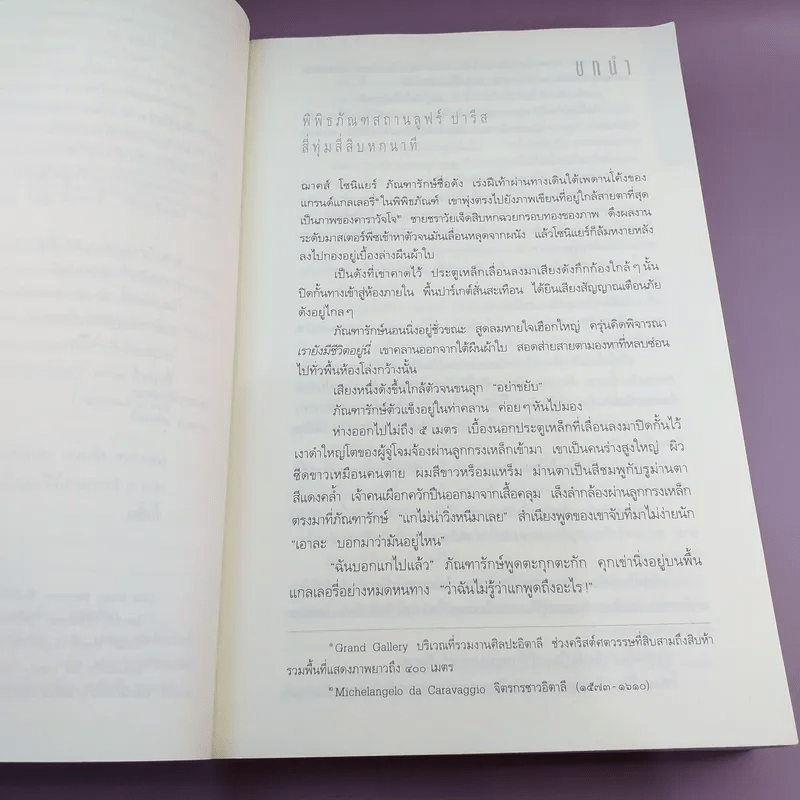 บทนำ
พิพิธภัณฑสถานลูฟร์ ปารีส
สี่ทุ่มสี่สิบหกนาที
ฌาคส์ โซนิแยร์ ภัณฑารักษ์ชื่อดัง เร่งฝีเท้าผ่านทางเดินใต้เพดานโค้งของ
แกรนด์แกลเลอรี่* ในพิพิธภัณฑ์ เขาพุ่งตรงไปยังภาพเขียนที่อยู่ใกล้สายตาที่สุด
เป็นภาพของคาราวัจโจ* ชายชราวัยเจ็ดสิบหกฉวยกรอบทองของภาพ ดึงผลงาน
ระดับมาสเตอร์พีซเข้าหาตัวจนมันเลื่อนหลุดจากผนัง แล้วโซนิแยร์ก็ล้มหงายหลัง
ลงไปกองอยู่เบื้องล่างผืนผ้าใบ
เป็นดังที่เขาคาดไว้ ประตูเหล็กเลื่อนลงมาเสียงดังกึกก้องใกล้ๆ นั้น
ปิดกั้นทางเข้าสู่ห้องภายใน พื้นปาร์เกต์สั่นสะเทือน ได้ยินเสียงสัญญาณเตือนภัย
ดังอยู่ไกลๆ
ภัณฑารักษ์นอนนิ่งอยู่ชั่วขณะ สูดลมหายใจเฮือกใหญ่ ครุ่นคิดพิจารณา
เรายังมีชีวิตอยู่นี่ เขาคลานออกจากใต้ผืนผ้าใบ สอดส่ายสายตามองหาที่หลบซ่อน
ไปทั่วพื้นห้องโล่งกว้างนั้น
เสียงหนึ่งดังขึ้นใกล้ตัวจนขนลุก “อย่าขยับ”
ภัณฑารักษ์ตัวแข็งอยู่ในท่าคลาน ค่อยๆ หันไปมอง
ห่างออกไปไม่ถึง ๕ เมตร เบื้องนอกประตูเหล็กที่เลื่อนลงมาปิดกั้นไว้
เงาดำใหญ่โตของผู้จู่โจมจ้องผ่านลูกกรงเหล็กเข้ามา เขาเป็นคนร่างสูงใหญ่ ผิว
ซีดขาวเหมือนคนตาย ผมสีขาวหร็อมแหร็ม ม่านตาเป็นสีชมพูกับรูม่านตา
สีแดงคล้ำ เจ้าคนเผือกควักปืนออกมาจากเสื้อคลุม เล็งลำกล้องผ่านลูกกรงเหล็ก
ตรงมาที่ภัณฑารักษ์ “แกไม่น่าวิ่งหนีมาเลย” สำเนียงพูดของเขาจับที่มาไม่ง่ายนัก
“เอาละ บอกมาว่ามันอยู่ไหน”
“ฉันบอกแกไปแล้ว” ภัณฑารักษ์พูดตะกุกตะกัก คุกเข่านิ่งอยู่บนพื้น
แกลเลอรี่อย่างหมดหนทาง “ว่าฉันไม่รู้ว่าแกพูดถึงอะไร!”
* Grand Gallery บริเวณที่รวมงานศิลปะอิตาลี ช่วงคริสต์ศตวรรษที่สิบสามถึงสิบห้า
รวมพื้นที่แสดงภาพยาวถึง ๔๐๐ เมตร
* Michelangelo da Caravaggio จิตรกรชาวอิตาลี (๑๕๗๓-๑๖๑๐)